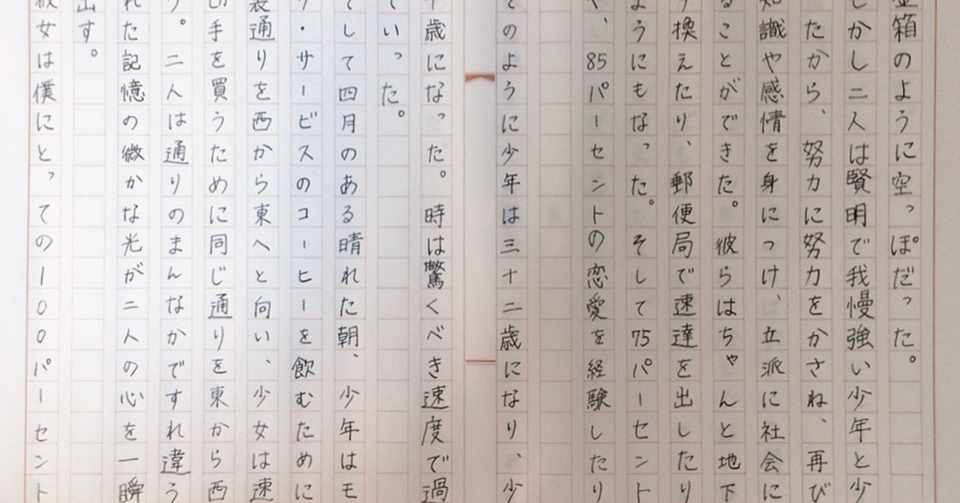 金箱のように空っぽだった。
しかし二人は賢明で我慢強い少年と少
たから、努力に努力をかさね、再び
知識や感情を身につけ、立派に社会に
ることができた。彼らはちゃんと地下
り換えたり、郵便局で速達を出したり
ようにもなった。そして75パーセント
や、85パーセントの恋愛を経験したり
そのように少年は三十二歳になり、少
十歳になった。時は驚くべき速度で過
ていった。
そして四月のある晴れた朝、少年はモ
グ・サービスのコーヒーを飲むために
裏通りを西から東へと向い、少女は速
切手を買うために同じ通りを東から西
う。二人は通りのまんなかですれ違う
れた記憶の微かな光が二人の心を一瞬
出す。
彼女は僕にとっての100パーセント